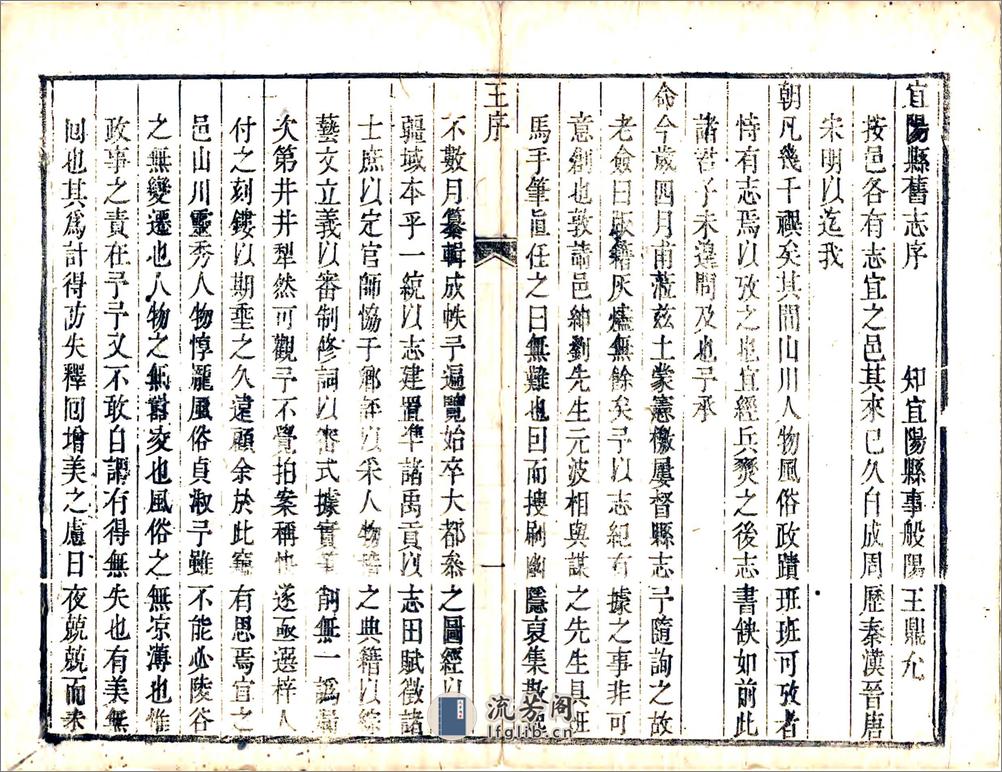 宜陽縣舊志序　知宜陽縣事般陽王鼎允
按邑各有志宜之邑其來已久自成周歷秦漢晉唐
宋明以迄我
朝凡幾千禩矣其間山川人物風俗政蹟班班可攷者
恃有志焉以攷之也宜經兵燹之後志書缺如前此
諸君子未遑問及也予承
命今歲四月甫蒞玆土蒙憲檄屢督縣志予隨詢之故
老僉曰版籍灰燼無餘矣予以志紀有據之事非可
意創也敦請邑紳劉先生元波相與謀之先生具班
馬手筆眞任之曰無難也因而搜剔幽隱裒集散
王序
一
不數月纂輯成帙予遍覽始卒大都叅之圖經以
疆域本乎一統以志建置準諸禹貢以志田賦徵諸
士庶以定官師恊于鄉評以采人物稽之典籍以綜
藝文立義以審制修詞以審式據實筆削無一譌
次第井井犁然可觀予不覺拍案稱快遂亟選梓人
付之刻鏤以期垂之久遠顧余於此竊有思焉宜之
邑山川靈秀人物惇龐風俗貞淑予雖不能必陵谷
之無變遷也人物之無嚣凌也風俗之無凉薄也惟
政事之責在予予又不敢自謂有得無失也有美無
回也其爲計得訪失釋回增美之慮日夜兢兢而叅
流芳阁
lfglib.cn